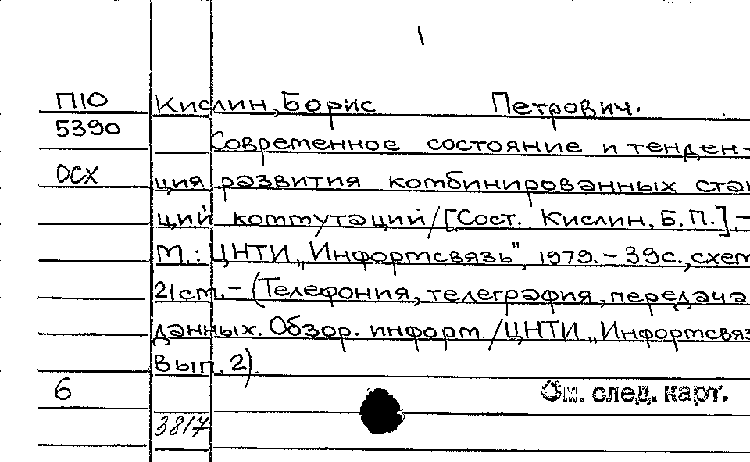 1
П10 Кислин, Борис Петрович.
5390 Современное состояние и тенден-
ОСХ ция развития комбинированных стан
ций коммутаций/[Сост. Кислин, Б.П.].-
М.: ЦНТИ „Информсвязь", 1979.-39с., схем
21см.-(Телефония, телеграфия, передача
данных. Обзор. информ/ЦНТИ „Информсвяз
Вып. 2).
6 См. след. карт.
3817